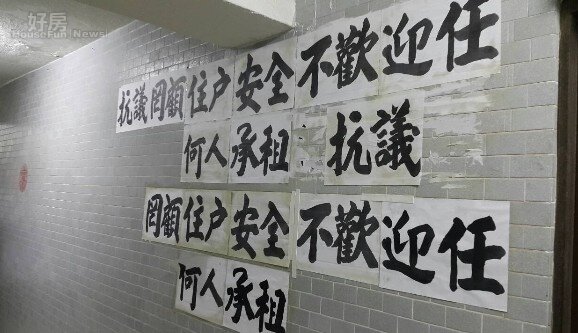 好房
HouseFun News
抗議罔顧住户安全不歡迎任
何人承租 抗議
罔顧住户安全不歡迎任
何人承租